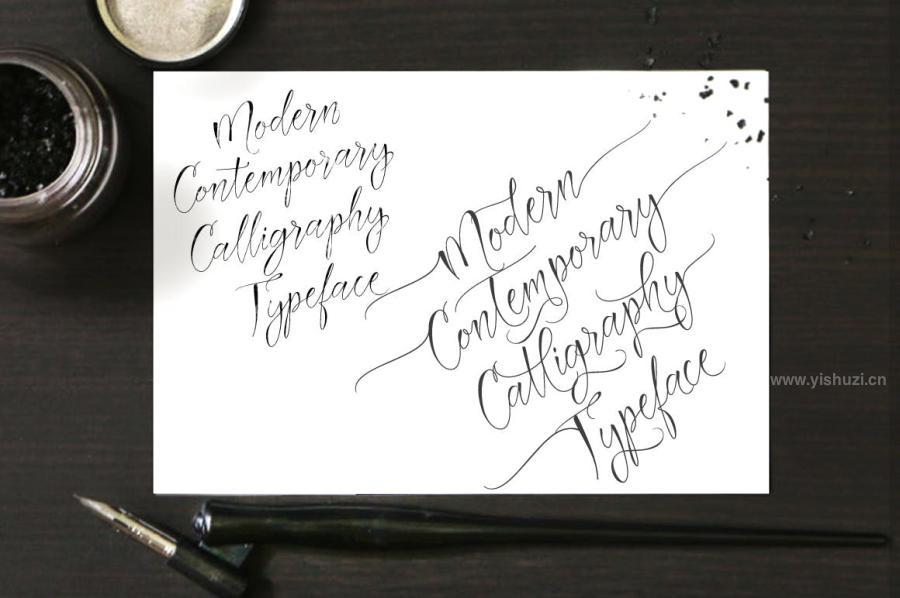 Modern
Contemporary
Calligraphy
Typeface
Modern
Contemporary
Calligraphy
Typeface
www.yishuzi.cn